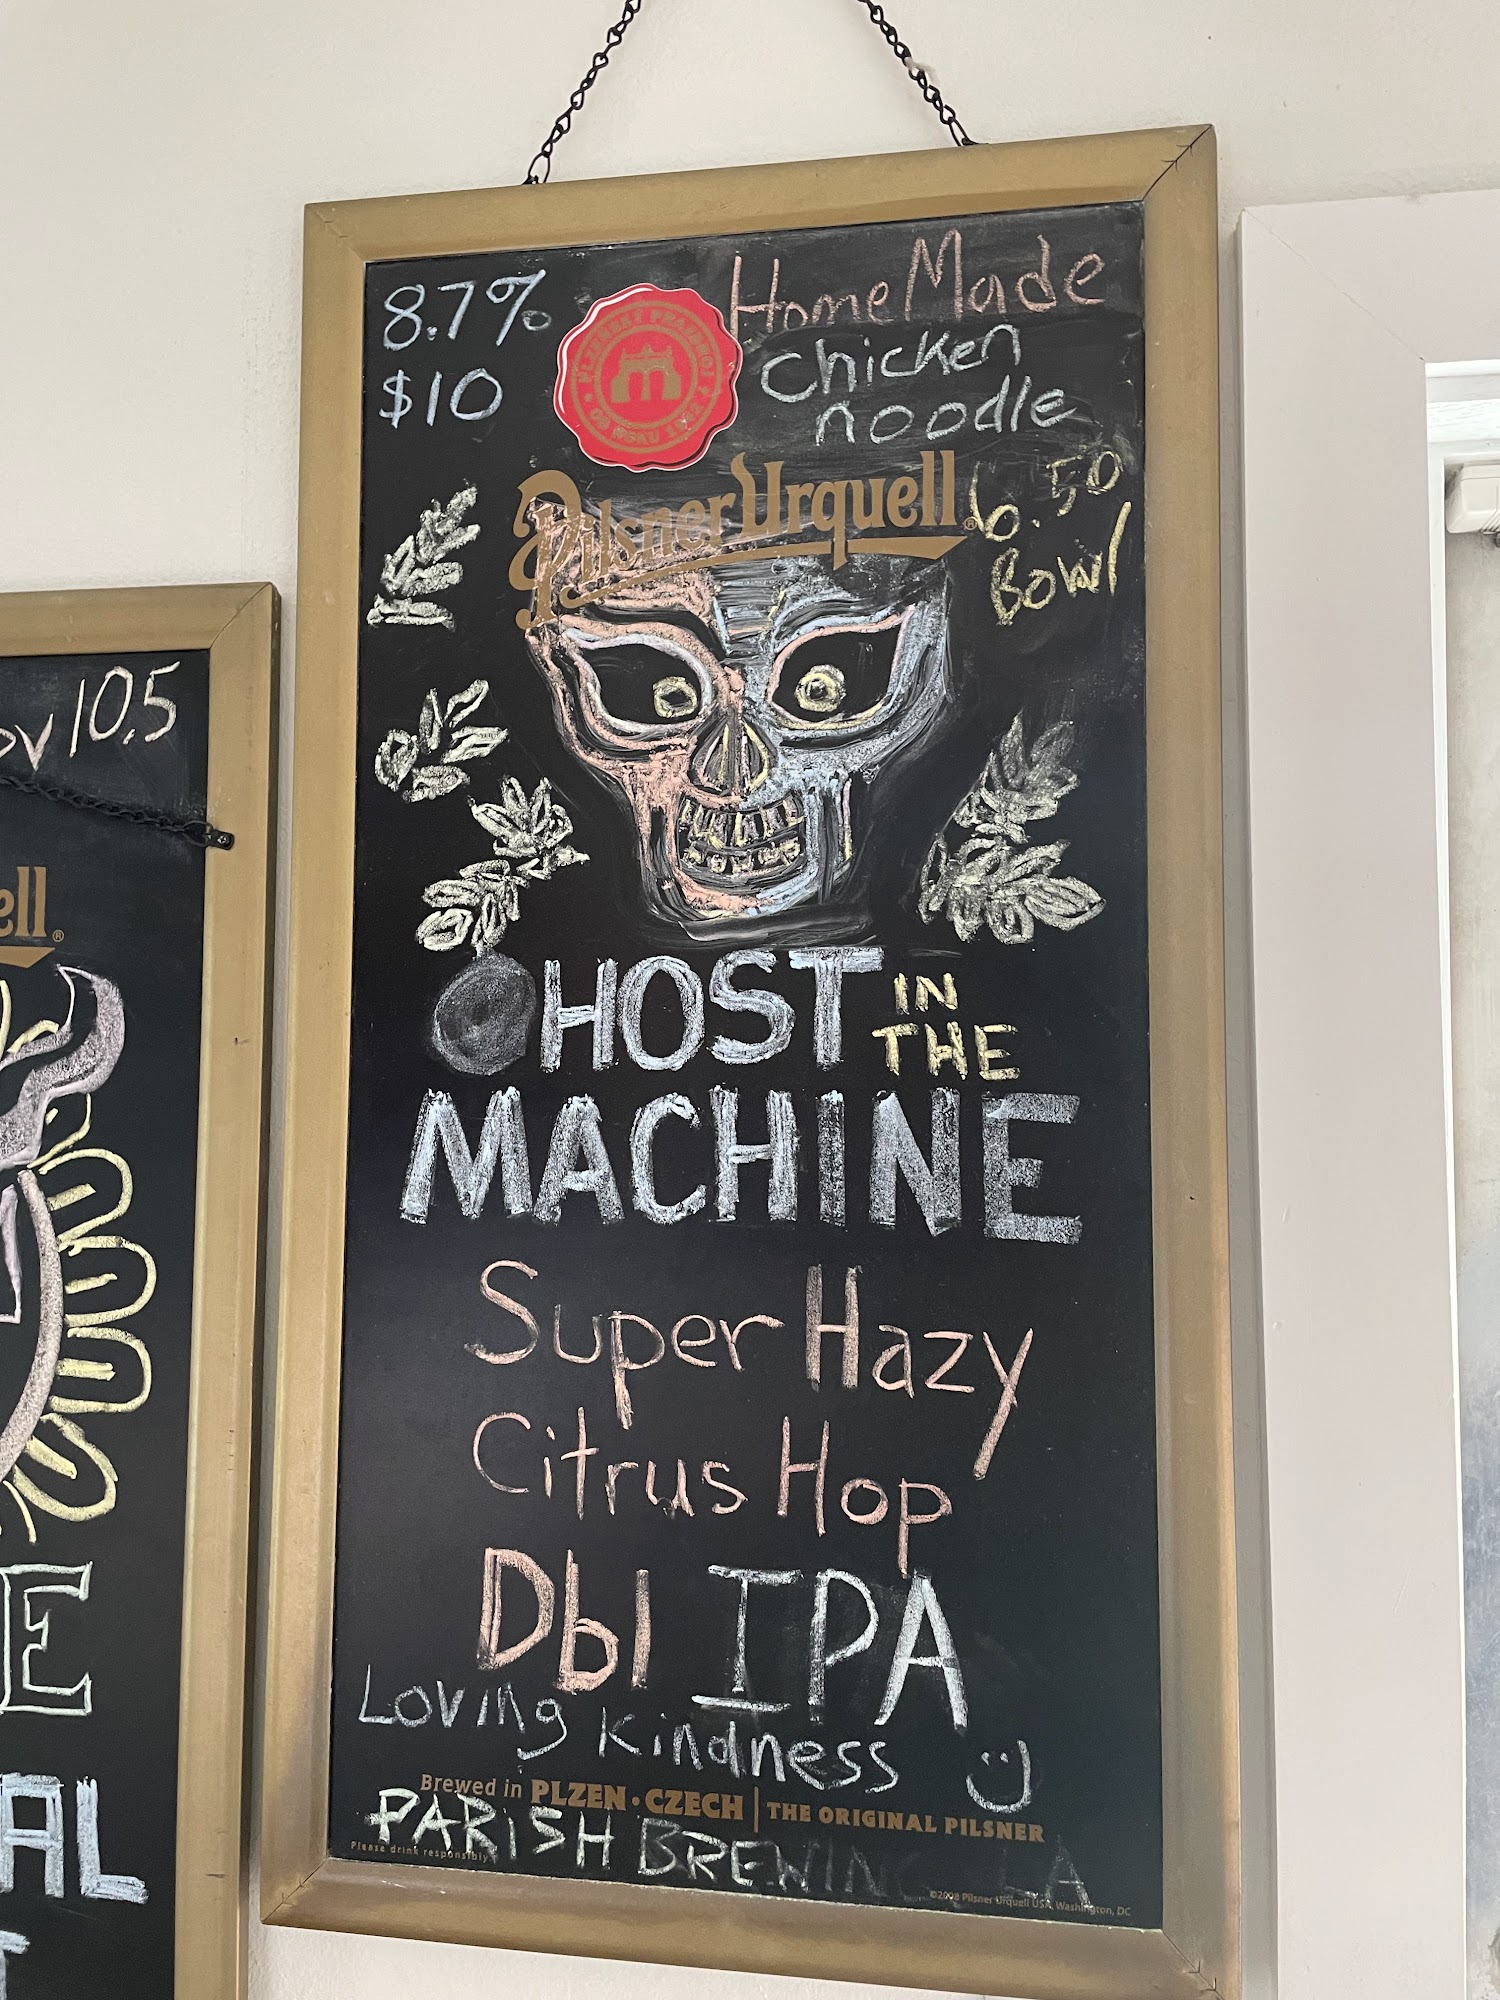 8.7%
$10
HomeMade
Chicken
noodle
6.50
Bowl
PLZEŇSKÝ PRAZDROJ
OD ROKU 1842
Pilsner Urquell®
HOST IN
THE
MACHINE
Super Hazy
Citrus Hop
Dbl IPA
Loving Kindness
Brewed in PLZEN • CZECH | THE ORIGINAL PILSNER
PARISH BREWING LA
Please drink responsibly
©2008 Pilsner Urquell USA, Washington, DC
10.5
ell®
E
AL